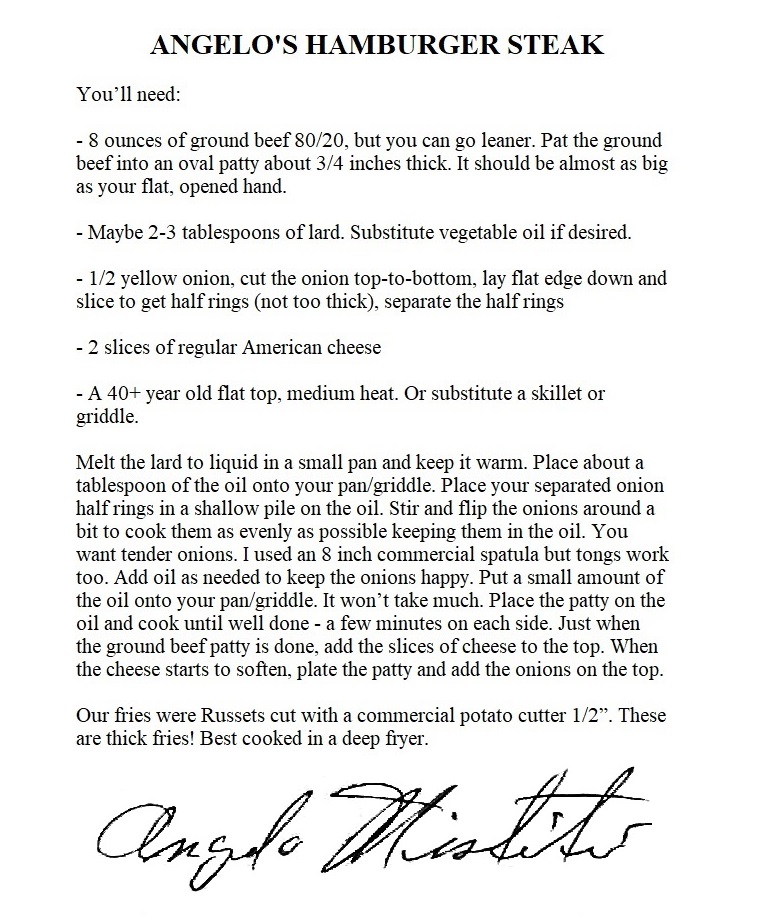 ANGELO'S HAMBURGER STEAK
You’ll need:
- 8 ounces of ground beef 80/20, but you can go leaner. Pat the ground
beef into an oval patty about 3/4 inches thick. It should be almost as big
as your flat, opened hand.
- Maybe 2-3 tablespoons of lard. Substitute vegetable oil if desired.
- 1/2 yellow onion, cut the onion top-to-bottom, lay flat edge down and
slice to get half rings (not too thick), separate the half rings
- 2 slices of regular American cheese
- A 40+ year old flat top, medium heat. Or substitute a skillet or
griddle.
Melt the lard to liquid in a small pan and keep it warm. Place about a
tablespoon of the oil onto your pan/griddle. Place your separated onion
half rings in a shallow pile on the oil. Stir and flip the onions around a
bit to cook them as evenly as possible keeping them in the oil. You
want tender onions. I used an 8 inch commercial spatula but tongs work
too. Add oil as needed to keep the onions happy. Put a small amount of
the oil onto your pan/griddle. It won’t take much. Place the patty on the
oil and cook until well done - a few minutes on each side. Just when
the ground beef patty is done, add the slices of cheese to the top. When
the cheese starts to soften, plate the patty and add the onions on the top.
Our fries were Russets cut with a commercial potato cutter 1/2”. These
are thick fries! Best cooked in a deep fryer.
Angelo Mistito